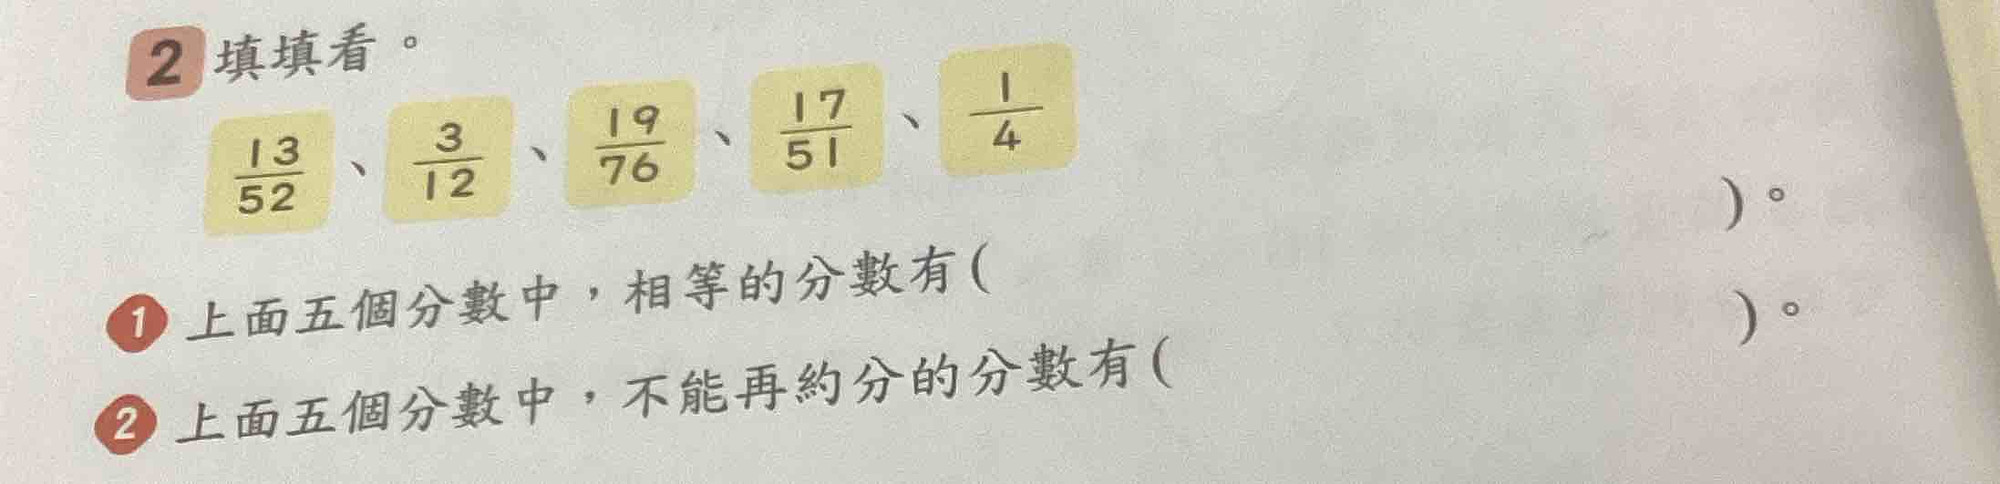 2 填填看。
13/52、3/12、19/76、17/51、1/4
1 上面五個分數中，相等的分數有(　　　　)。
2 上面五個分數中，不能再約分的分數有(　　　　)。